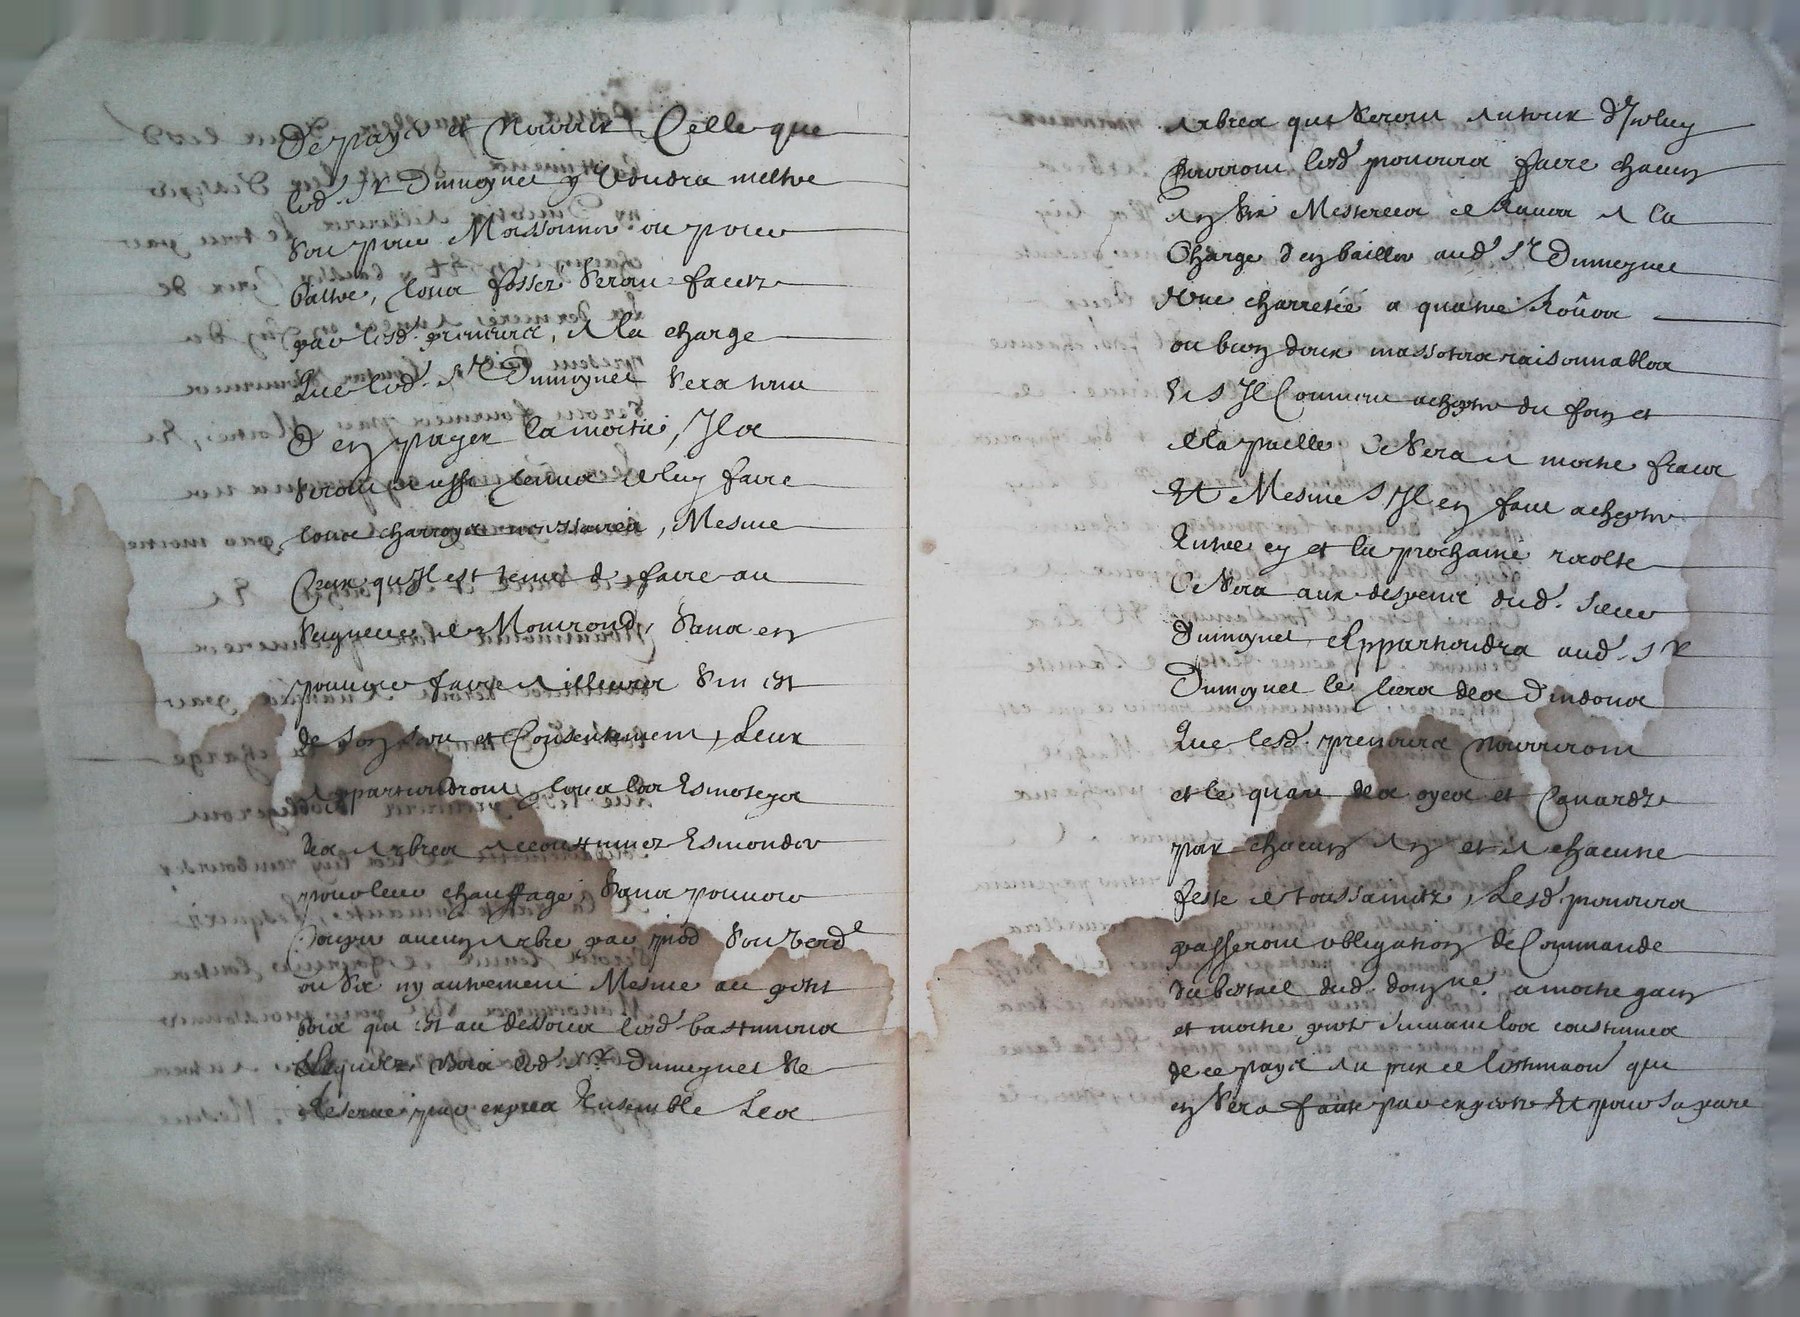 de payer et nourrir Celle que
led. Sr Dumoynet y voudra mettre
soit pour Moissonner ou pour
battre, tous fossez seront faictz
par lesd. preneurs, A la charge
Que led. Sr Dumoynet sera tenu
d'en payer la moitié, Ilz
seront aussy tenus de luy faire
tous charroys necessaires, Mesme
Ceux qu'Il est tenu de faire au
seigneur de Montrond, sans en
pouvoir faire ailleurs sy n'est
de son sceu et Consentement, Leur
appartiendront tous les Esmoteys
des arbres accoustumez Esmonder
pour leur chauffage, sans pouvoir
Couper aucun arbre par pied soit verd
ou secq ny autrement Mesme au petit
bois qui est au dessoubz lesd. bastimens
Lesquelz bois led. Sr Dumoynet se
Reserve par expres Ensemble Les
Arbres qui seront autour d'Iceluy
pourront lesd. preneurs faire chacun
an six Mesterees de Raves A la
Charge d'en bailler aud. Sr Dumoynet
Une charretée a quatre Roües
ou bien deux raisonnables
Et s'Il Convient achepter du foin et
de la paille Ce sera A moitié fraix
Et Mesme S'Il en faut achepter
Entre cy et la prochaine recolte
Ce sera aux despens dud. Sieur
Dumoynet Appartiendra aud. Sr
Dumoynet le tiers des d'indons
Que lesd. preneurs nourriront
et le quart des oyes et Canardz
par chacun an et A chacune
feste de toussainctz, Lesd. preneurs
passeront obligation de Commande
du bestail dud. domne. a moitié gain
et moitié perte suivant les coustumes
de ce pays au prix de l'estimaon que
en sera faite par expertz Et pour sa part